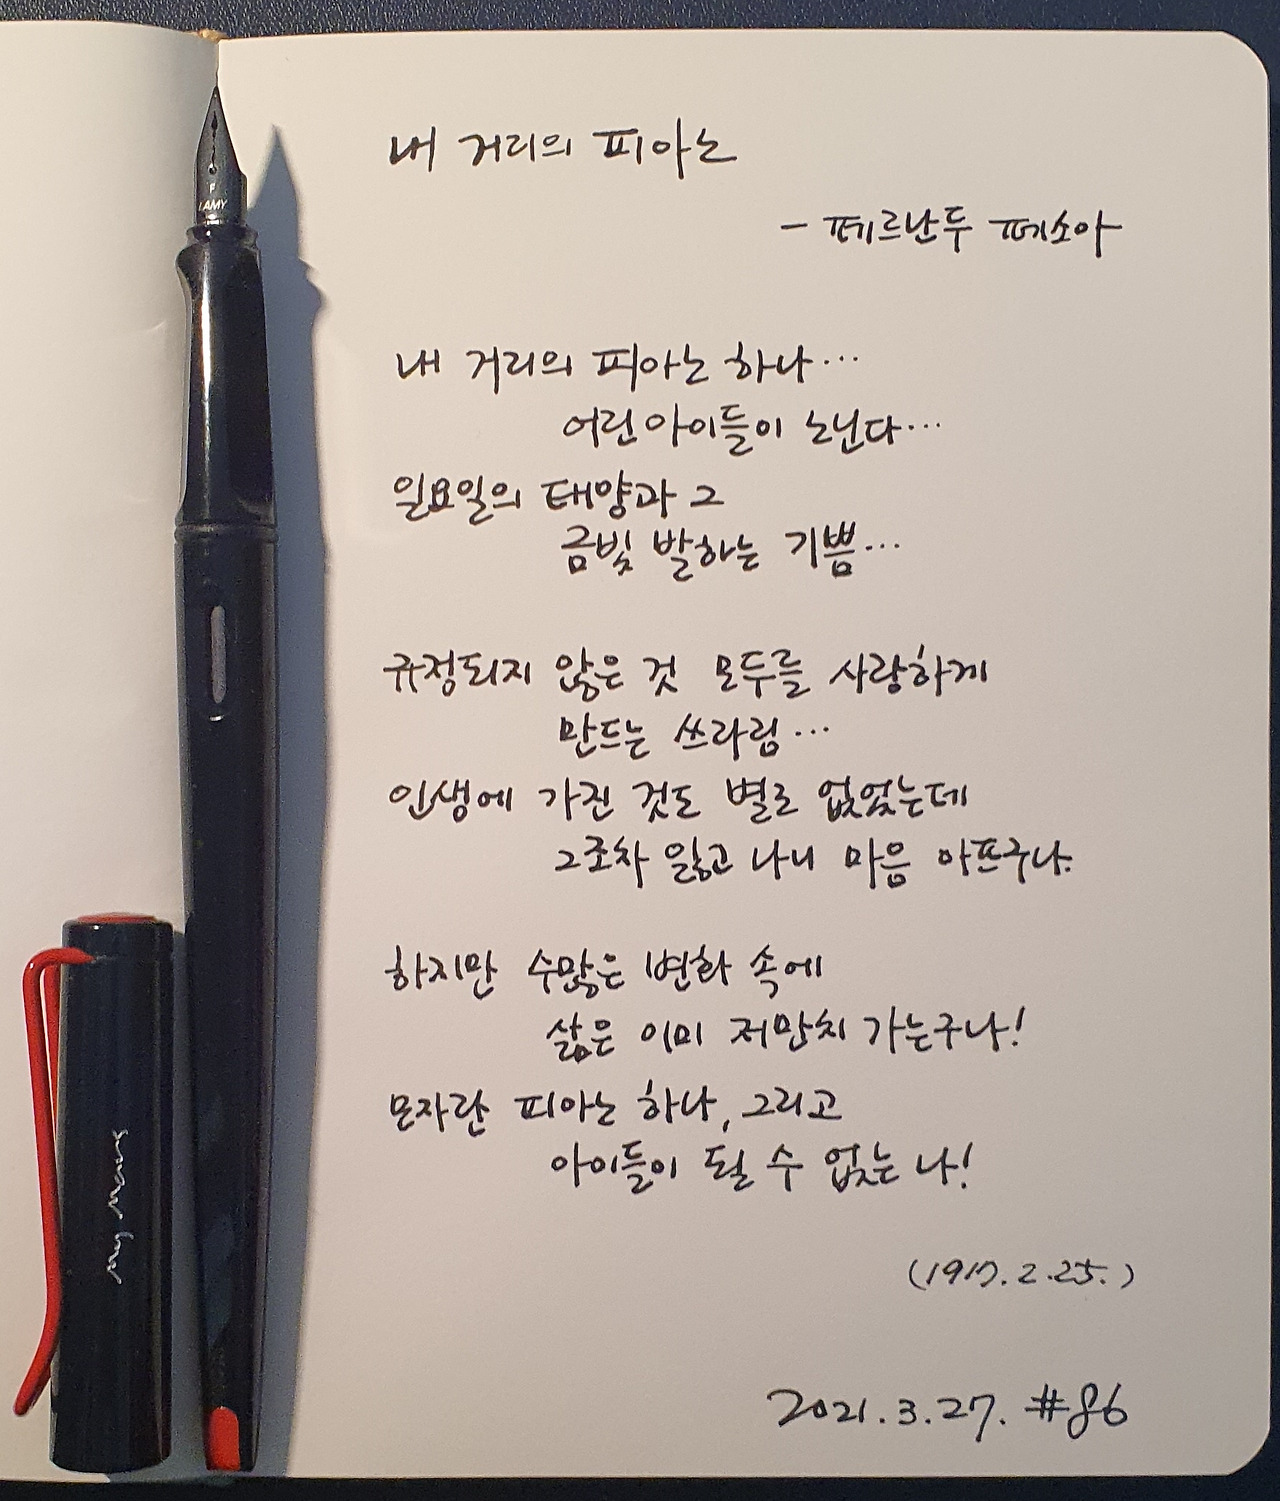 내 거리의 피아노
- 페르난두 페소아
내 거리의 피아노 하나···
어린 아이들이 노닌다···
일요일의 태양과 그
금빛 발하는 기쁨···
규정되지 않은 것 모두를 사랑하게
만드는 쓰라림···
인생에 가진 것도 별로 없었는데
그조차 잃고 나니 마음 아프구나.
하지만 수많은 변화 속에
삶은 이미 저만치 가는구나!
모자란 피아노 하나, 그리고
아이들이 될 수 없는 나!
(1917.2.25.)
2021.3.27. #86
F
LAMY